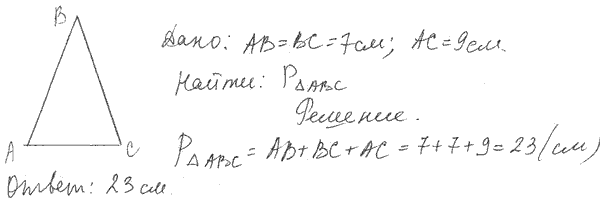 B
Дано: AB=BC=7см; AC=9см.
Найти: P△ABC
Решение.
A C
P△ABC = AB+BC+AC = 7+7+9 = 23 (см)
Ответ: 23 см.